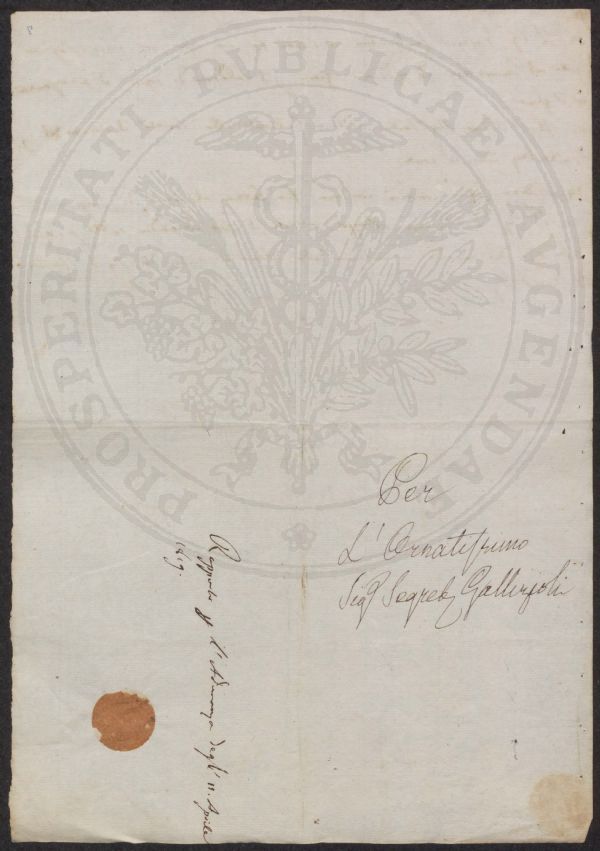 PROSPERITATI PVBLICAE AVGENDAE
Per
L' Ornatissimo
Sigr Segret Gallizioli
per L'Adunanza degl' 11. Aprile
1819.